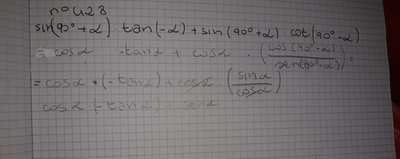 n° 428
sin(90°+α) · tan(-α) + sin(90°+α) · cot(90°-α)
= cosα · -tanα + cosα · (cos(90°-α)/sen(90°-α)) =
= cosα · (-tanα) + cosα · (sinα/cosα)
cosα (-tanα) sinα